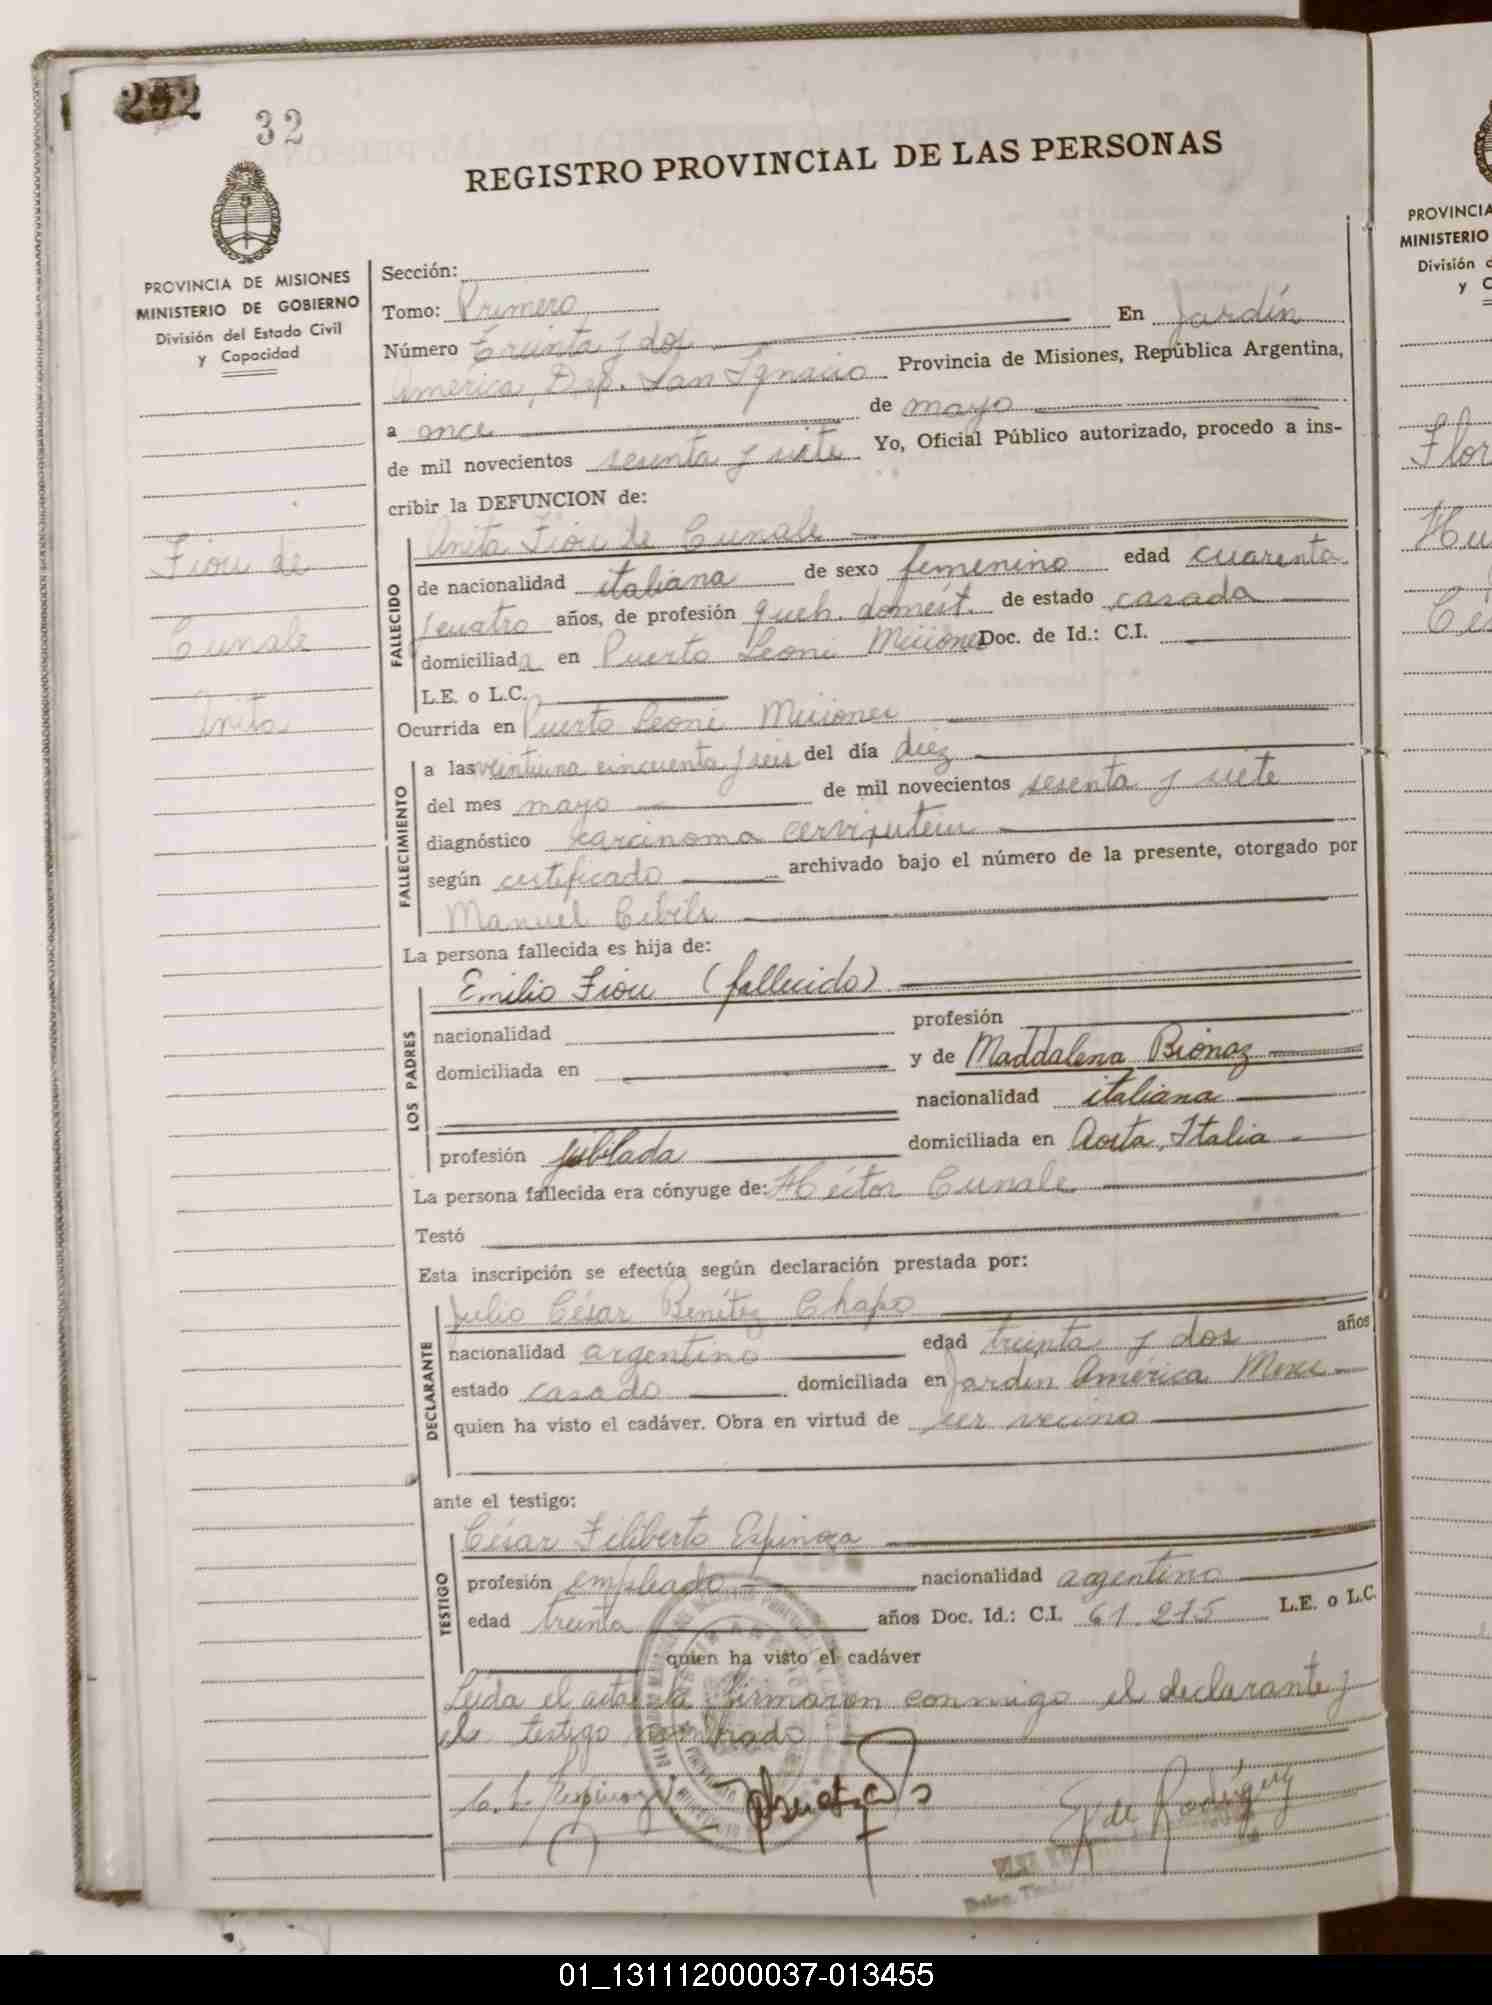 292
32
REGISTRO PROVINCIAL DE LAS PERSONAS
PROVINCIA DE MISIONES
MINISTERIO DE GOBIERNO
División del Estado Civil
y Capacidad
Fiou de
Cunale
Anita
Sección:
Tomo: Primero
Número Treinta y dos En Jardín
America, Dep. San Ignacio Provincia de Misiones, República Argentina,
a once de mayo
de mil novecientos sesenta y siete Yo, Oficial Público autorizado, procedo a ins-
cribir la DEFUNCION de:
FALLECIDO
Anita Fiou de Cunale
de nacionalidad italiana de sexo femenino edad cuarenta
y cuatro años, de profesión queh. domést. de estado casada
domiciliada en Puerto Leoni Misiones Doc. de Id.: C.I.
L.E. o L.C.
Ocurrida en Puerto Leoni Misiones
FALLECIMIENTO
a las veintiuna cincuenta y seis del día diez
del mes mayo de mil novecientos sesenta y siete
diagnóstico carcinoma
según certificado archivado bajo el número de la presente, otorgado por
Manuel Cibils
La persona fallecida es hija de:
LOS PADRES
Emilio Fiou (fallecido)
nacionalidad profesión
domiciliada en y de Maddalena Bionaz
nacionalidad italiana
profesión jubilada domiciliada en Aosta, Italia
La persona fallecida era cónyuge de: Héctor Cunale
Testó
Esta inscripción se efectúa según declaración prestada por:
DECLARANTE
Julio César Benítez Chapo
nacionalidad argentino edad treinta y dos años
estado casado domiciliada en Jardín América Mnes
quien ha visto el cadáver. Obra en virtud de ser vecino
ante el testigo:
TESTIGO
César Filiberto Espinoza
profesión empleado nacionalidad argentino
edad treinta años Doc. Id.: C.I. 61.215 L.E. o L.C.
quien ha visto el cadáver
Leida el acta la firmaron conmigo el declarante y
el testigo nombrado
PROVINCIA
MINISTERIO
División d
y C
Flor
Hu
01_131112000037-013455